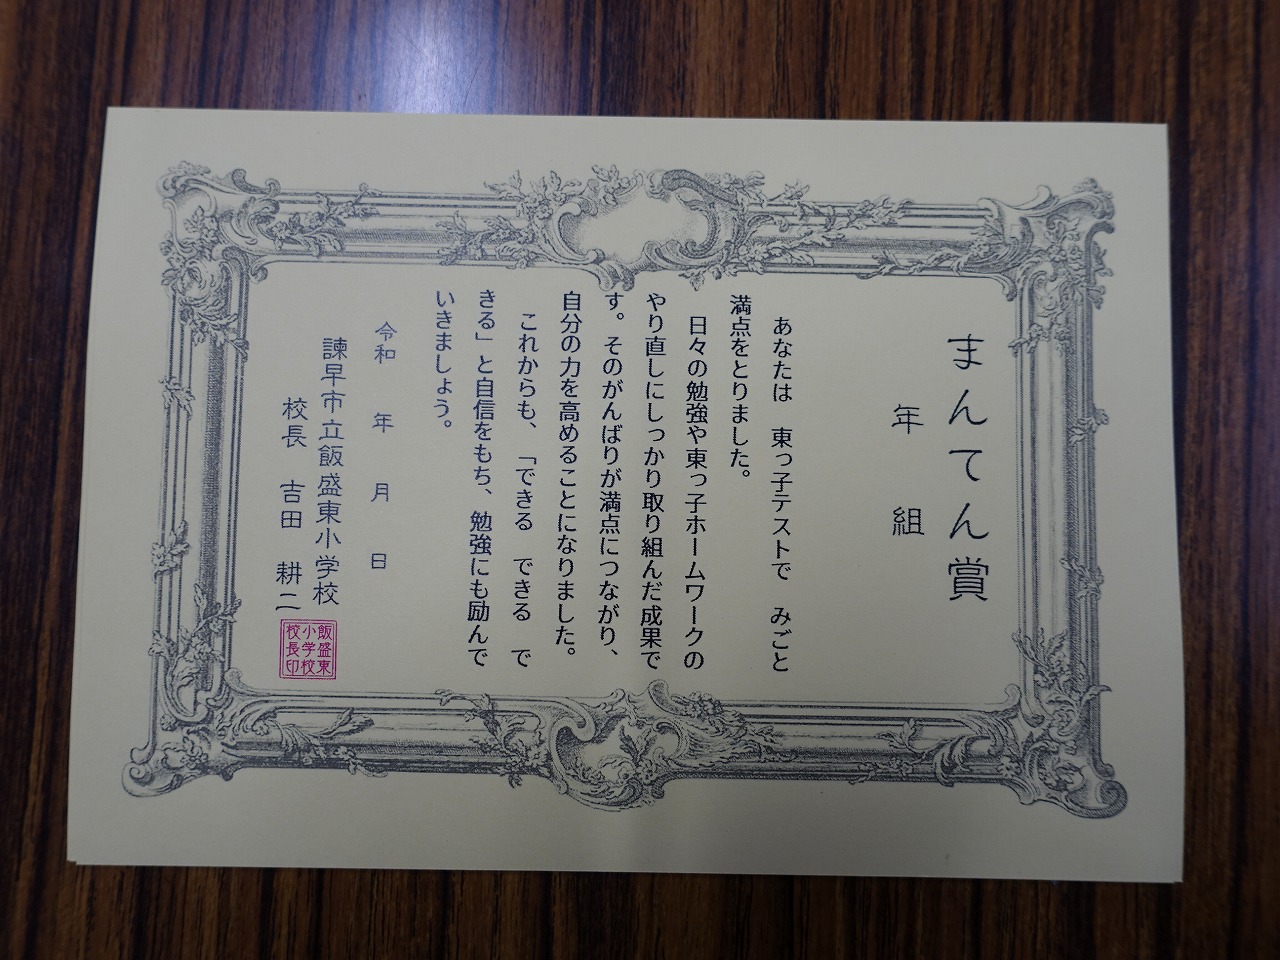 まんてん賞
年　組
あなたは　東っ子テストで　みごと
満点をとりました。
日々の勉強や東っ子ホームワークの
やり直しにしっかり取り組んだ成果で
す。そのがんばりが満点につながり、
自分の力を高めることになりました。
これからも、「できる　できる　で
きる」と自信をもち、勉強にも励んで
いきましょう。
令和　年　月　日
諫早市立飯盛東小学校
校長　吉田　耕二
飯盛東
小学校
校長印